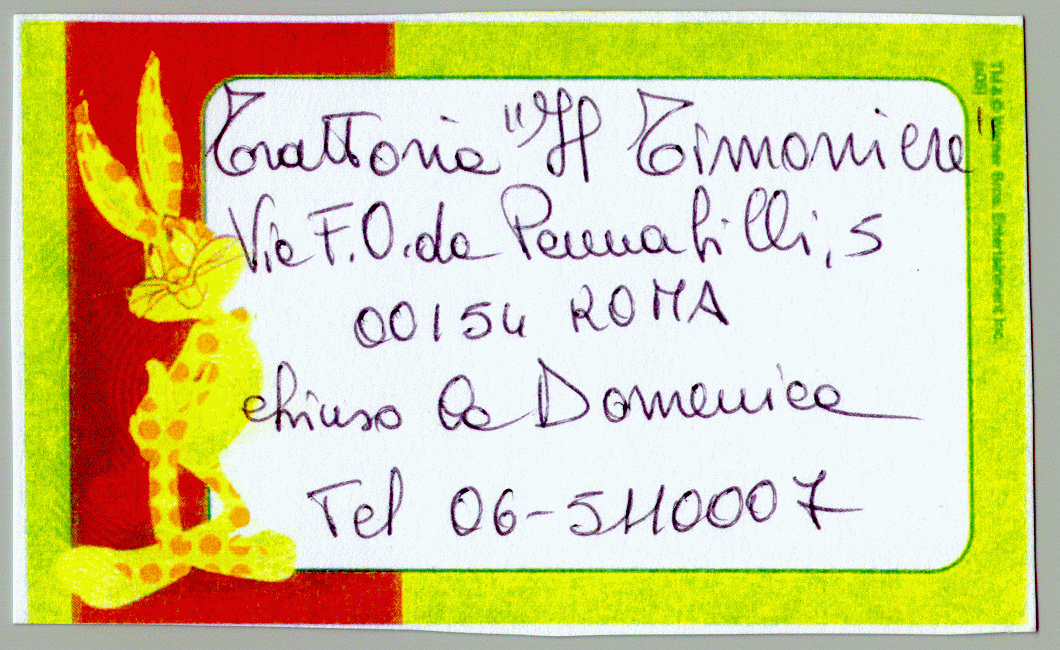 Trattoria "Il Timoniere"
Via F.O. da Pennabilli, 5
00154 ROMA
chiuso la Domenica
Tel 06-5110007
TM & © Warner Bros. Entertainment Inc.
(s09)